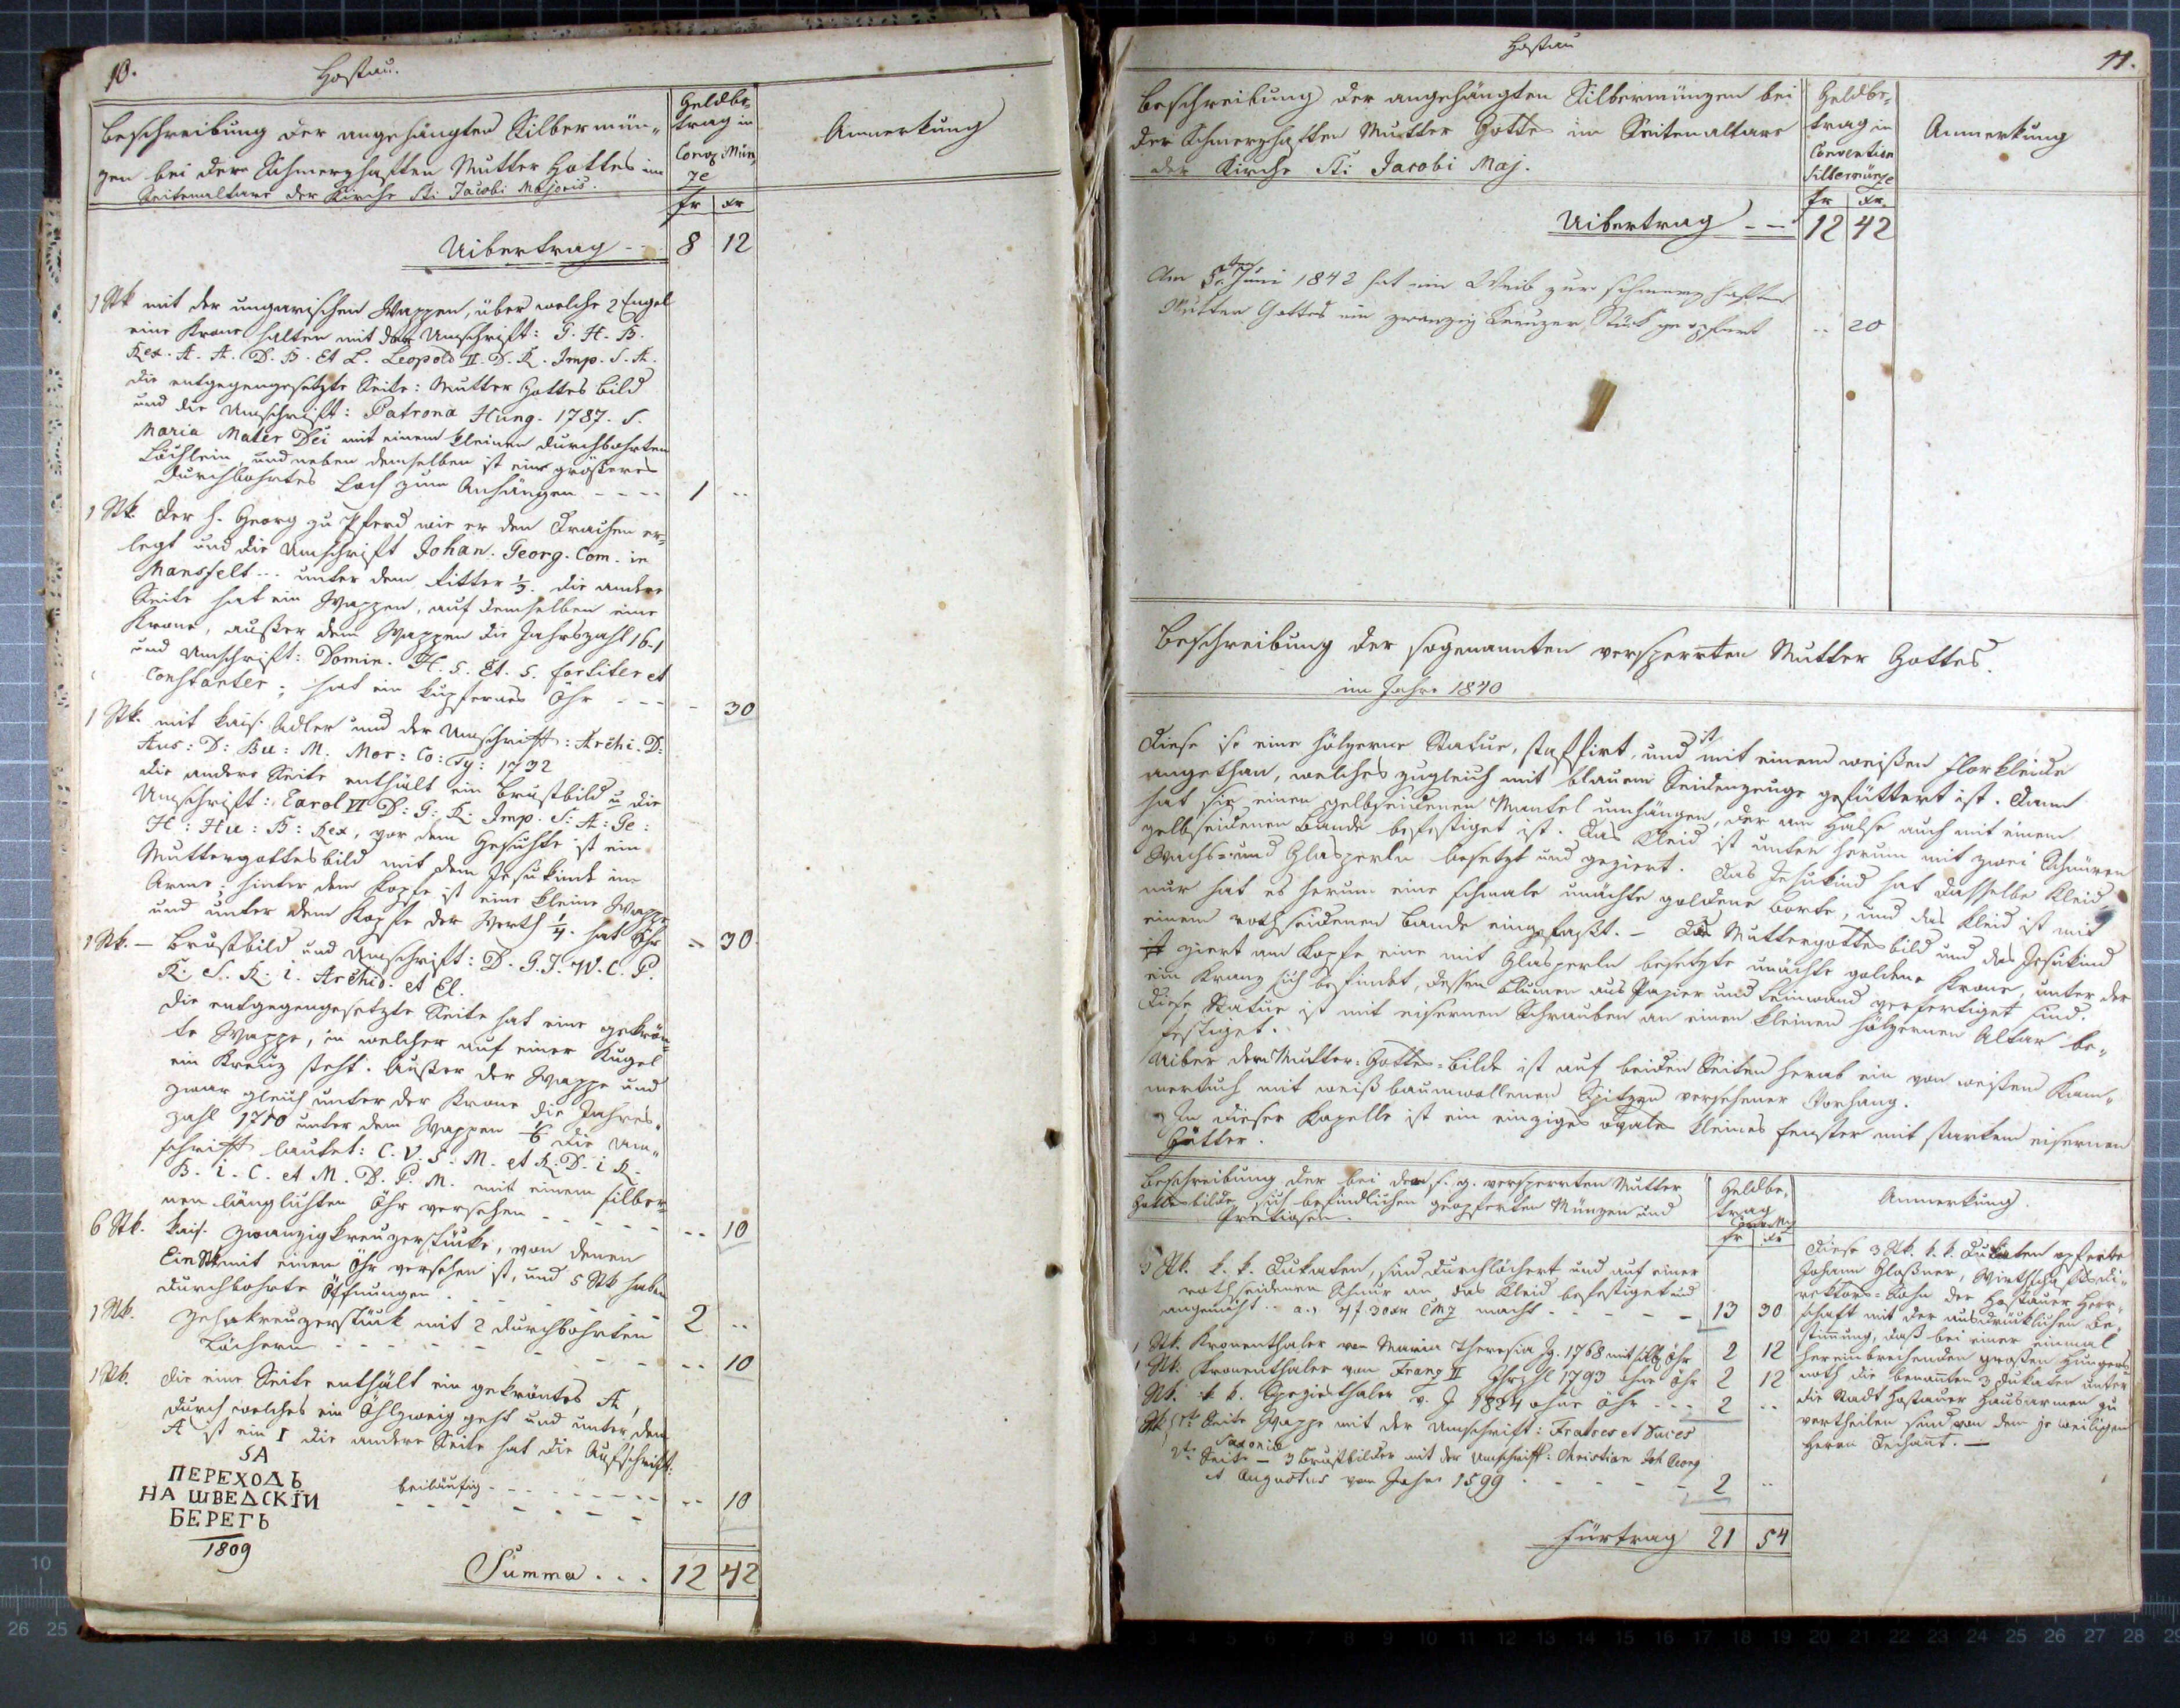 10.
Hostau.
Beschreibung der angehängten Silbermün„
zen bei der Schmerzhaften Mutter Gottes im
Seitenaltare der Kirche Sti Jacobi Majoris.
Geldbe„
trag in
Conv: Mün„
ze
fr xr
Anmerkung
Uibertrag - - 8 12
1 Stk mit der ungarischen Wappen, über welche 2 Engel
eine Krone halten mit der Umschrift: G. H. B.
Rex. A. A. D. B. Et L. Leopold II. D. R. Imp. S. A.
die entgegengesetzte Seite: Mutter Gottes Bild
und die Umschrift: Patrona Hung. 1787. S.
Maria Mater Dei mit einem kleinen durchbohrten
Löchlein, und neben demselben ist ein größeres
durchbohrtes Loch zum Anhängen - - - - 1 ..
1 Stk. der h. Georg zu Pferd wie er den Drachen er„
legt und die Umschrift Johan. Georg. Com. in
Mansfelt - - unter dem Ritter 1/3. die andere
Seite hat ein Wappen, auf demselben eine
Krone, außer dem Wappen die Jahrszahl 16-1
und Umschrift: Domin. H. S. Et. S. fortiter et
Constanter; hat ein kupfernes Öhr - - - - 30
1 Stk. mit kais. Adler und der Umschrift: Archi. D:
Aus: D: Bu: M. Mor: Co: Ty: 1732
die andere Seite enthält ein Brustbild u die
Umschrift: Carol VI D: G: R: Imp. S: A: Ge:
H: Hu: B: Rex, vor dem Gesichte ist ein
Muttergottesbild mit dem Jesukinde im
Arme; hinter dem Kopfe ist eine kleine Wappe
und unter dem Kopfe der Werth 1/4. hat Öhr - 30.
1 Stk. — Brustbild und Umschrift: D. G. J. W. C. P.
R. S. R. i. Archid: et El.
die entgegengesetzte Seite hat eine gekrön„
te Wappe, in welcher auf einer Kugel
ein Kreuz steht. Außer der Wappe und
zwar gleich unter der Krone die Jahres„
zahl 1710 unter dem Wappen 1/6 die Um„
schrift lautet: C. V. S. M. et R. D. i R.
B. i. C. et M. D. P. M. mit einem silber„
nen länglichten Öhr versehen - - - - - .. 10
6 Stk. kais. Zwanzigkreuzerstücke, von denen
Ein Stk mit einem Öhr versehen ist, und 5 Stk haben
durchbohrte Öffnungen . - - - - - 2 ..
1 Stk. Zehnkreuzerstück mit 2 durchbohrten
Löchern - - - - - - - - - .. 10
1 Stk. die eine Seite enthält ein gekröntes A,
durch welches ein Öhlzweig geht und unter dem
A ist ein I die andere Seite hat die Aufschrift:
SA
ПЕРЕХОДЪ
НА ШВЕДСКIИ
БЕРЕГЪ
1809
beiläufig - - - - - - - - .. 10
Summa . . . 12 42
Hostau
11.
Beschreibung der angehängten Silbermünzen bei
der Schmerzhaften Mutter Gottes im Seitenaltare
der Kirche Sti Jacobi Maj.
Geldbe„
trag in
Convention
Silbermünze
fr xr.
Anmerkung
Uibertrag - - 12 42
Am 5ten Juni 1842 hat ein Weib zur schmerzhaften
Mutter Gottes ein zwanzig Kreuzer Stück geopfert .. 20
Beschreibung der sogenannten versperrten Mutter Gottes.
im Jahre 1840
Diese ist eine hölzerne Statue, staffirt, und ist mit einem weißen Florkleide
angethan, welches zugleich mit blauem Seidenzeuge gefüttert ist. Dann
hat sie einen gelbseidenen Mantel umhängen, der am Halse auch mit einem
gelbseidenen Bande befestiget ist. Das Kleid ist unten herum mit zwei Schnüren
Wachs- und Glasperln besetzt und geziert. Das Jesukind hat dasselbe Kleid,
nur hat es herum eine schmale unächte goldene Borte, und das Kleid ist mit
einem rothseidenen Bande eingefaßt. — Das Muttergottesbild und das Jesukind
ziert am Kopfe eine mit Glasperln besetzte unächte goldene Krone, unter der
ein Kranz sich befindet, dessen Blumen aus Papier und Leinwand verfertiget sind.
Diese Statue ist mit eisernen Schrauben an einen kleinen hölzernen Altar be„
festiget.
Uiber dem Mutter-Gottes-Bilde ist auf beiden Seiten herab ein von weißem Kam„
mertuch mit weißbaumwollenen Spitzen versehener Vorhang.
In dieser Kapelle ist ein einziges ovales kleines Fenster mit starkem eisernen
Gitter.
Beschreibung der bei dem s. g. versperrten Mutter
Gottesbilde sich befindlichen geopferten Münzen und
Pretiosen.
Geldbe„
trag
Conv. Mz
fr xr
Anmerkung.
3 Stk. k. k. Dukaten, sind durchlöchert und auf einer
rothseidenen Schnur an das Kleid befestiget und
angemacht . . a.) 4 f. 30 xr CMz macht - - - - 13 30
1 Stk. Kronenthaler von Maria Theresia Jz. 1768 mit silb Öhr 2 12
1 Stk. Kronenthaler von Franz II Jhrzhl 1793 ohne Öhr 2 12
Stk. k. k. Speziesthaler v. J 1824 ohne Öhr - - - 2 ..
Stk 1te Seite Wappe mit der Umschrift: Fratres et Duces
Saxoniae
2te Seite — 3 Brustbilder mit der Umschrift: Christian Joh Georg
et Augustus vom Jahre 1599 . - - - - 2 ..
Fürtrag 21 54
Diese 3 Stk. k. k. Dukaten opferte
Johann Gloßner, Wirthschaftsdi„
rektors-Sohn der Hostauer Herr„
schaft mit der ausdrücklichen Be„
stimmung, daß bei einer einmal
hereinbrechenden großen Hungers„
noth die benannten 3 Dukaten unter
die Stadt Hostauer Hausarmen zu
vertheilen sind von dem jeweiligen
Herrn Dechant. —